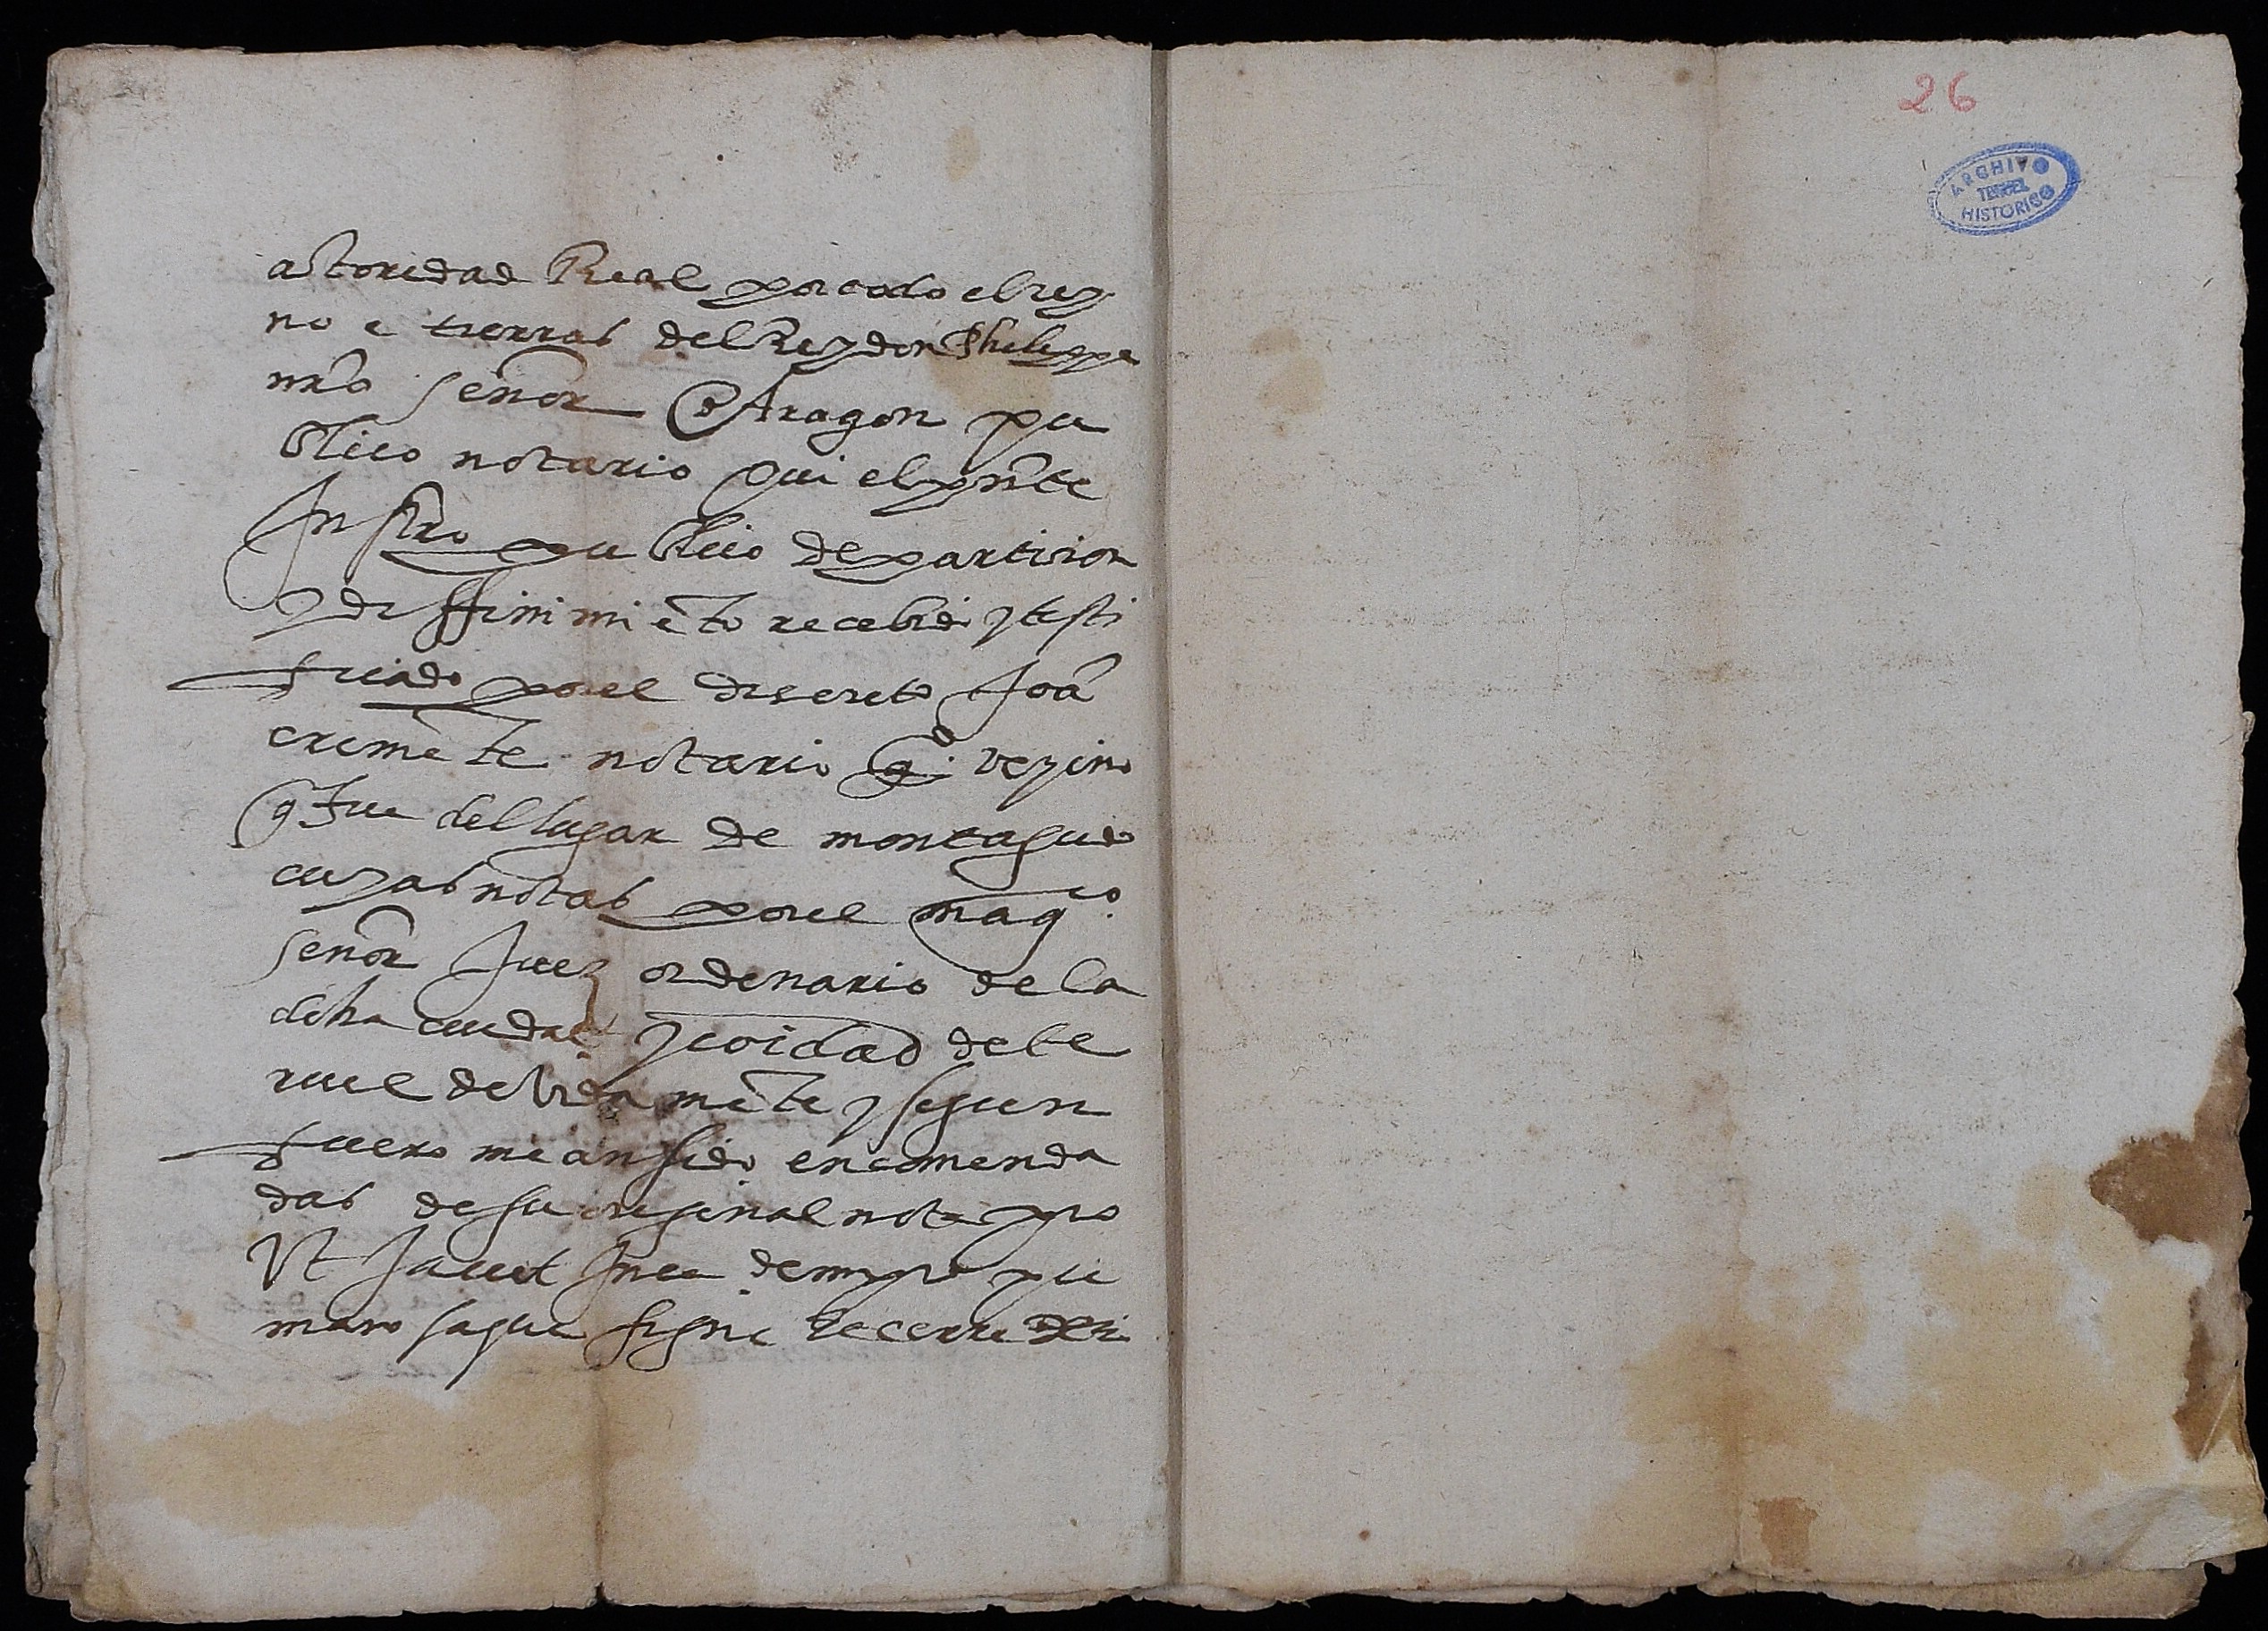 actoridad Real por todo el rey
no e tierras del Rey don Phelippe
nr̃o señor de Aragon pu
blico notario qui el pñte
Instr̃o publico de particion
y diffinimiẽto recebido y testi
ficado por el discreto Joã
climẽte notario qº. vezino
q̃ fue del lugar de montagudo
cuyas notas por el magco.
señor Juez ordenario de la
dicha ciudad y coidad de te
ruel devidamẽte y segun
fuero me an sido encomenda
das de su original nota pro
Vt Jacet In ea de mi ppia
mano saque signe E cerre
26
ARCHIVO
TERUEL
HISTORICO